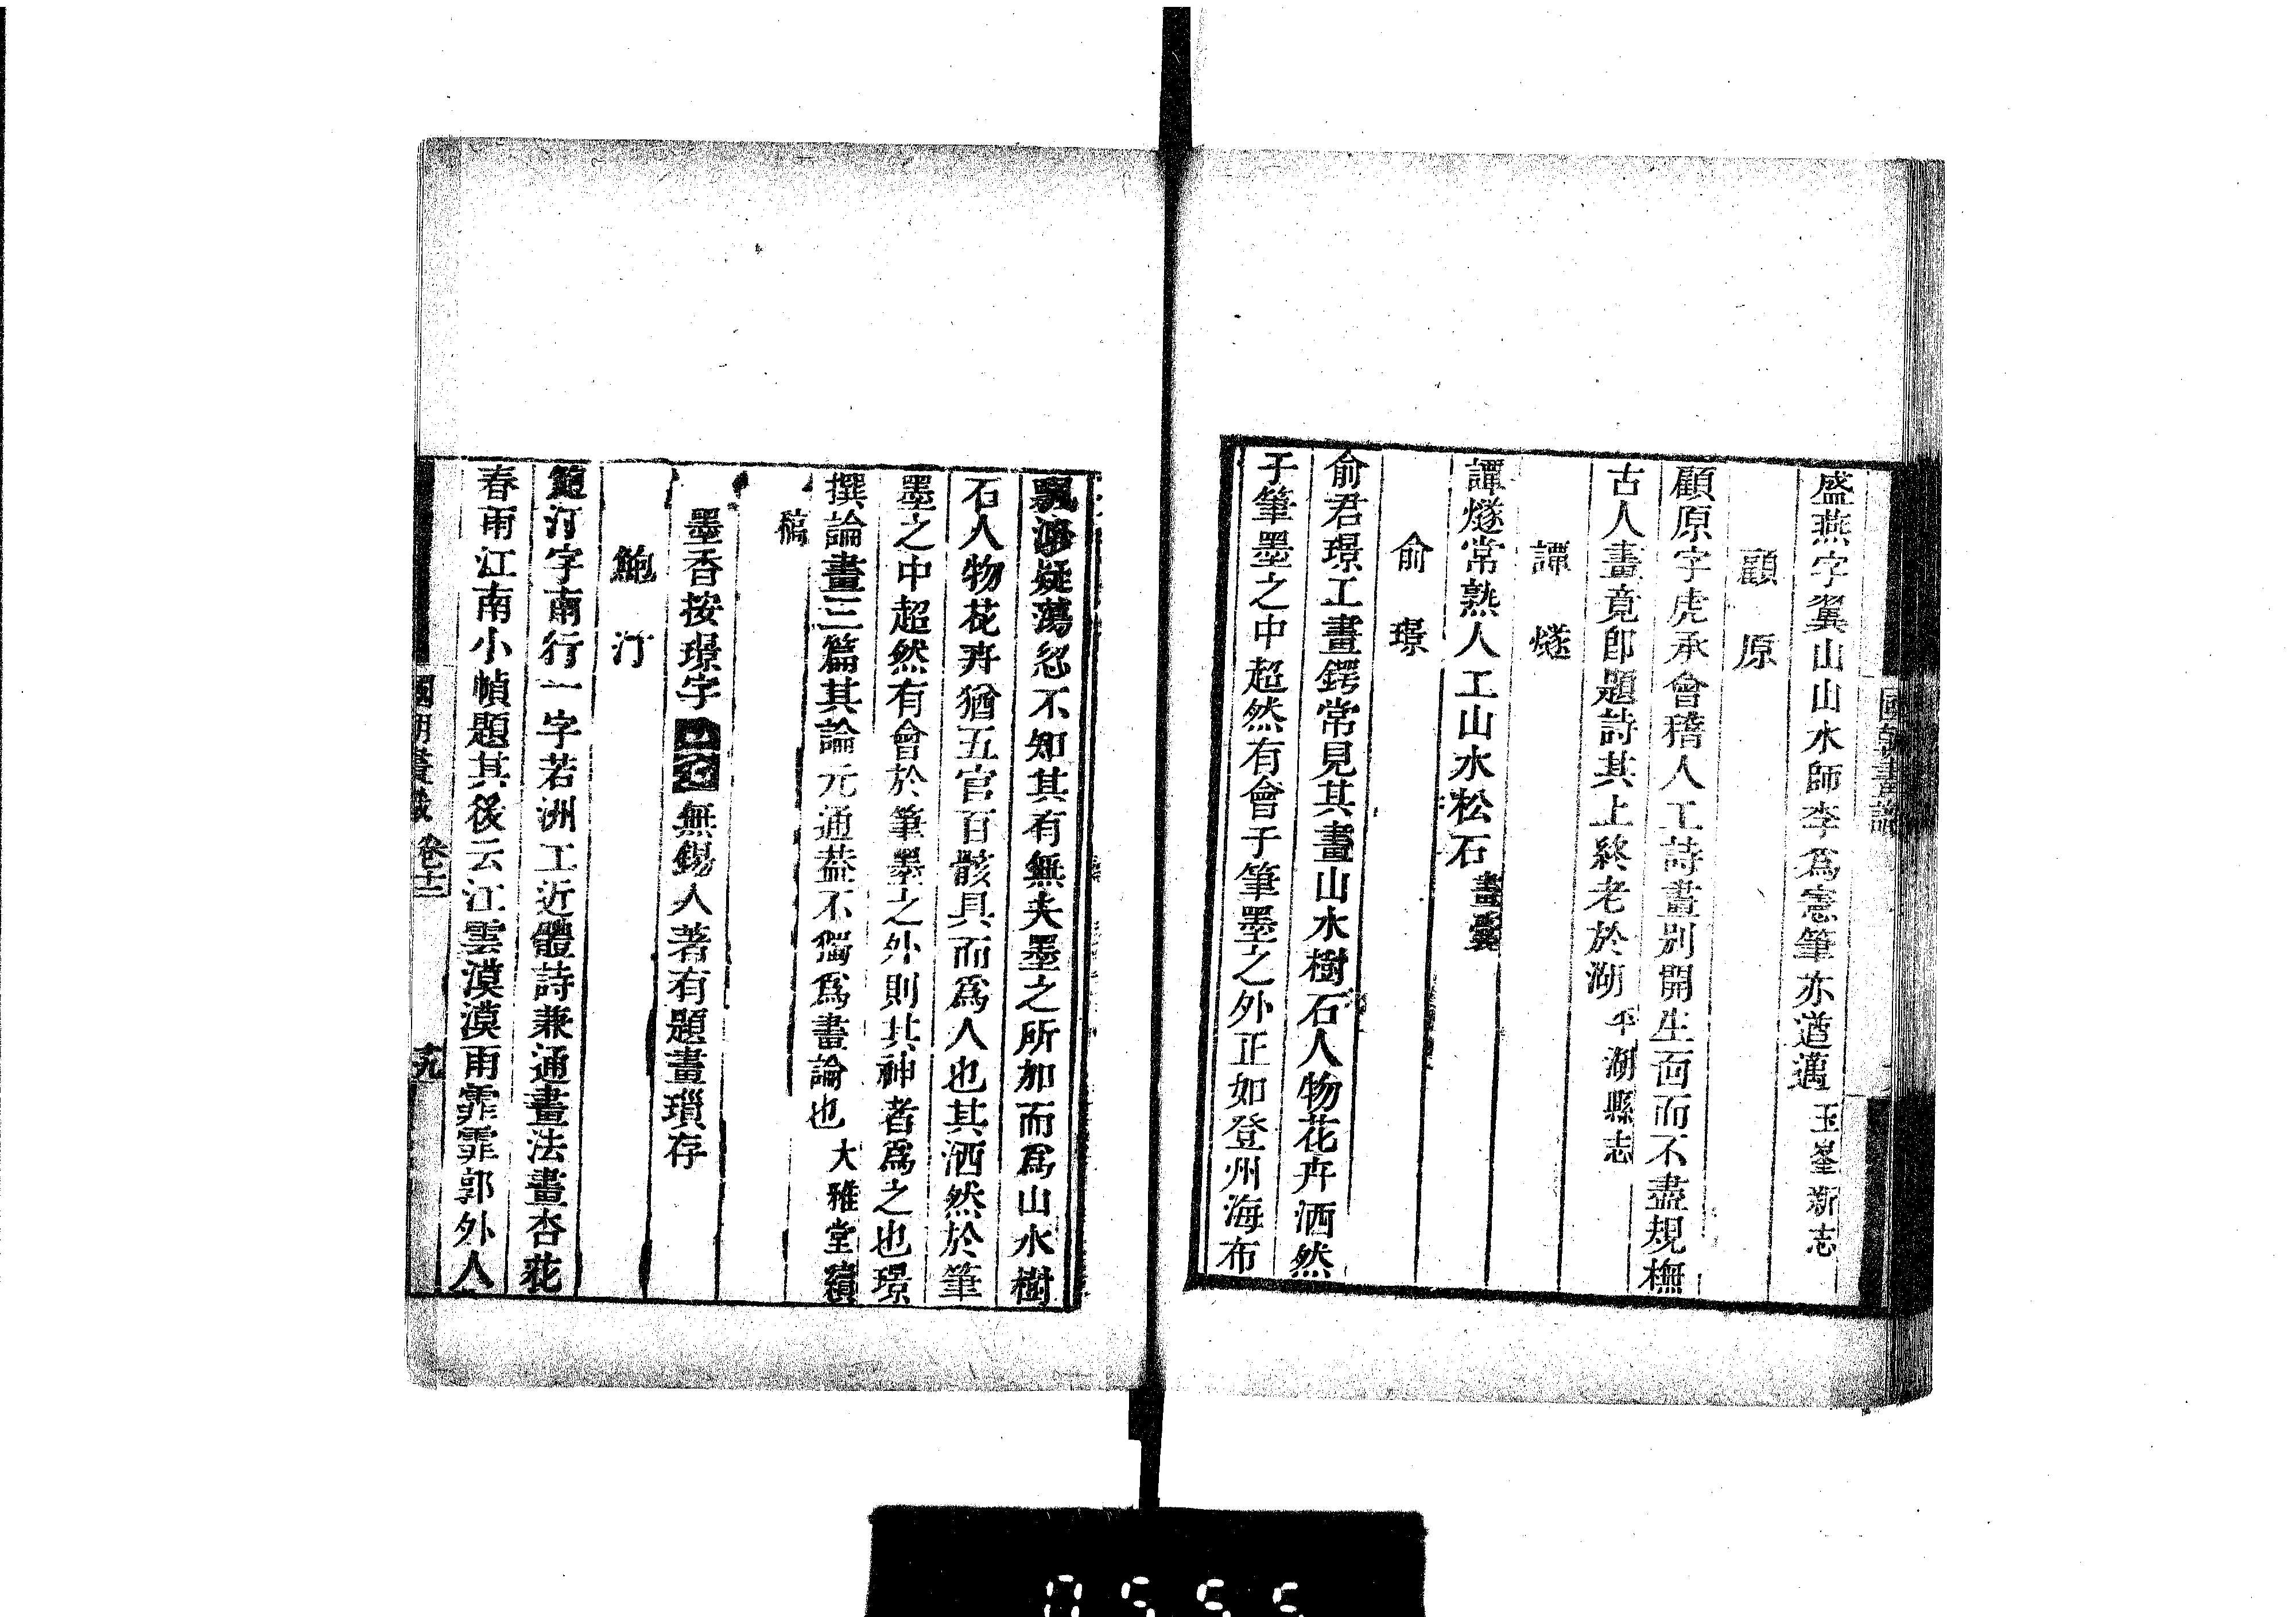 盛燕字翼山山水師李爲憲筆亦遒邁玉峯新志
顧原
顧原字虎承會稽人工詩畫別開生面而不盡規橅
古人畫竟卽題詩其上終老於湖平湖縣志
譚燧
譚燧常熟人工山水松石畫囊
俞璟
俞君璟工畫鍔常見其畫山水樹石人物花卉洒然
于筆墨之中超然有會于筆墨之外正如登州海布
飄渺疑蕩忽不知其有無夫墨之所加而爲山水樹
石人物花卉猶五官百骸具而爲人也其洒然於筆
墨之中超然有會於筆墨之外則其神者爲之也璟
撰論畫三篇其論元通葢不獨爲畫論也大雅堂續
稿
墨香按璟字無錫人著有題畫瑣存
鮑汀
鮑汀字南行一字若洲工近體詩兼通畫法畫杏花
春雨江南小幀題其後云江雲漠漠雨霏霏郭外人
國朝畫識 卷十二 十九
0555